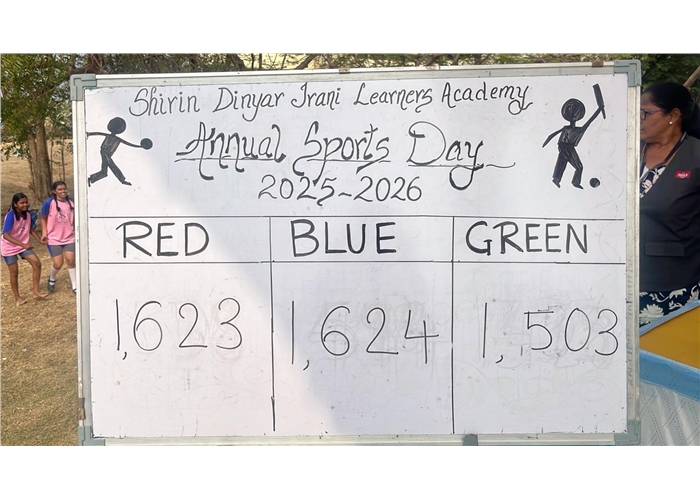 Shirin Dinyar Irani Learners Academy
Annual Sports Day
2025-2026
RED BLUE GREEN
1,623 1,624 1,503